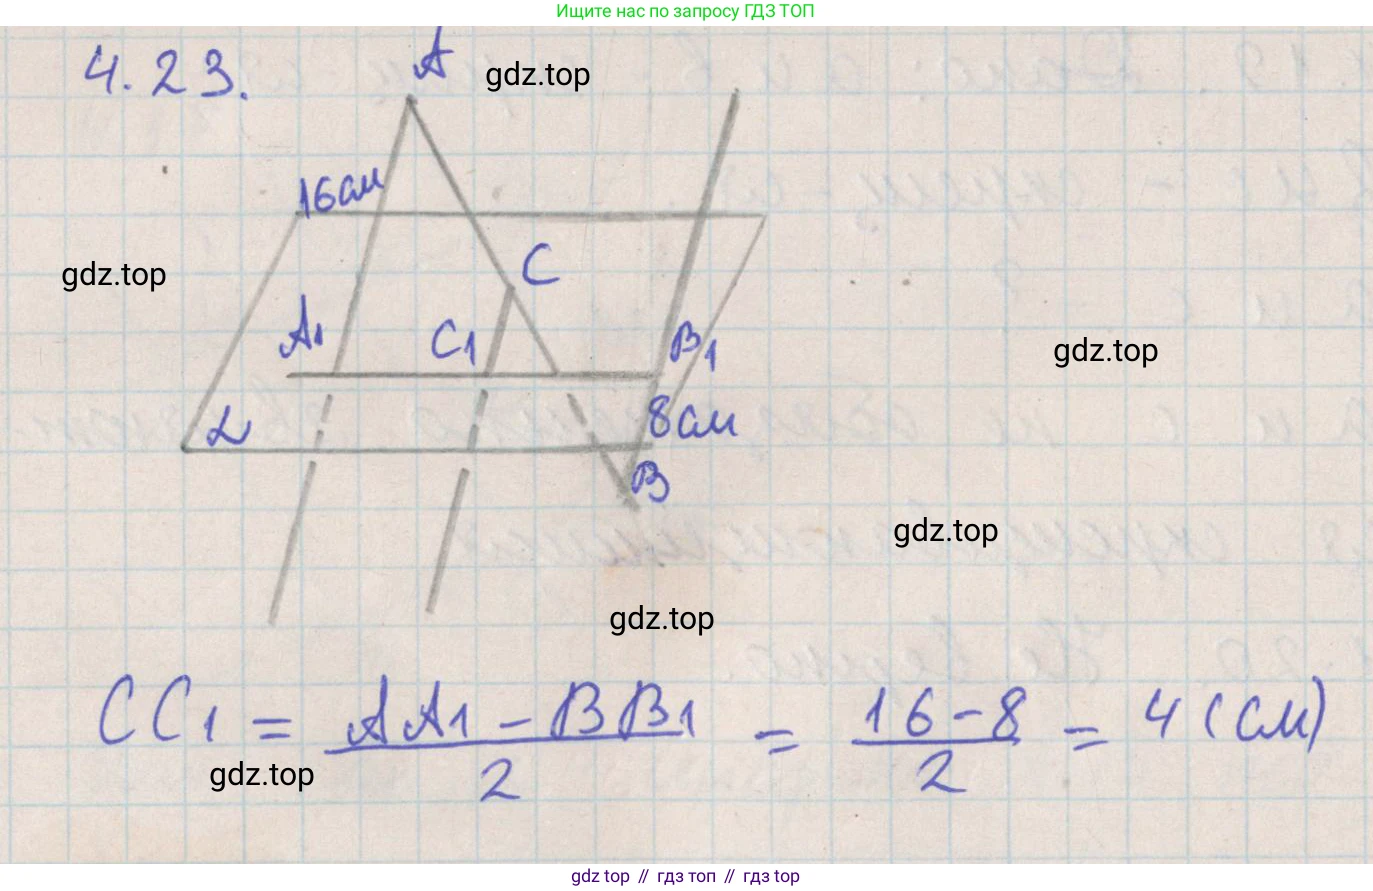 Ищите нас по запросу ГДЗ ТОП
4.23.
A
gdz.top
16см
gdz.top
C
A1
C1
B1
gdz.top
L
8см
B
gdz.top
gdz.top
CC1 = AA1 - BB1 / 2 = 16-8 / 2 = 4 (см)
gdz.top
gdz top // гдз топ // гдз top